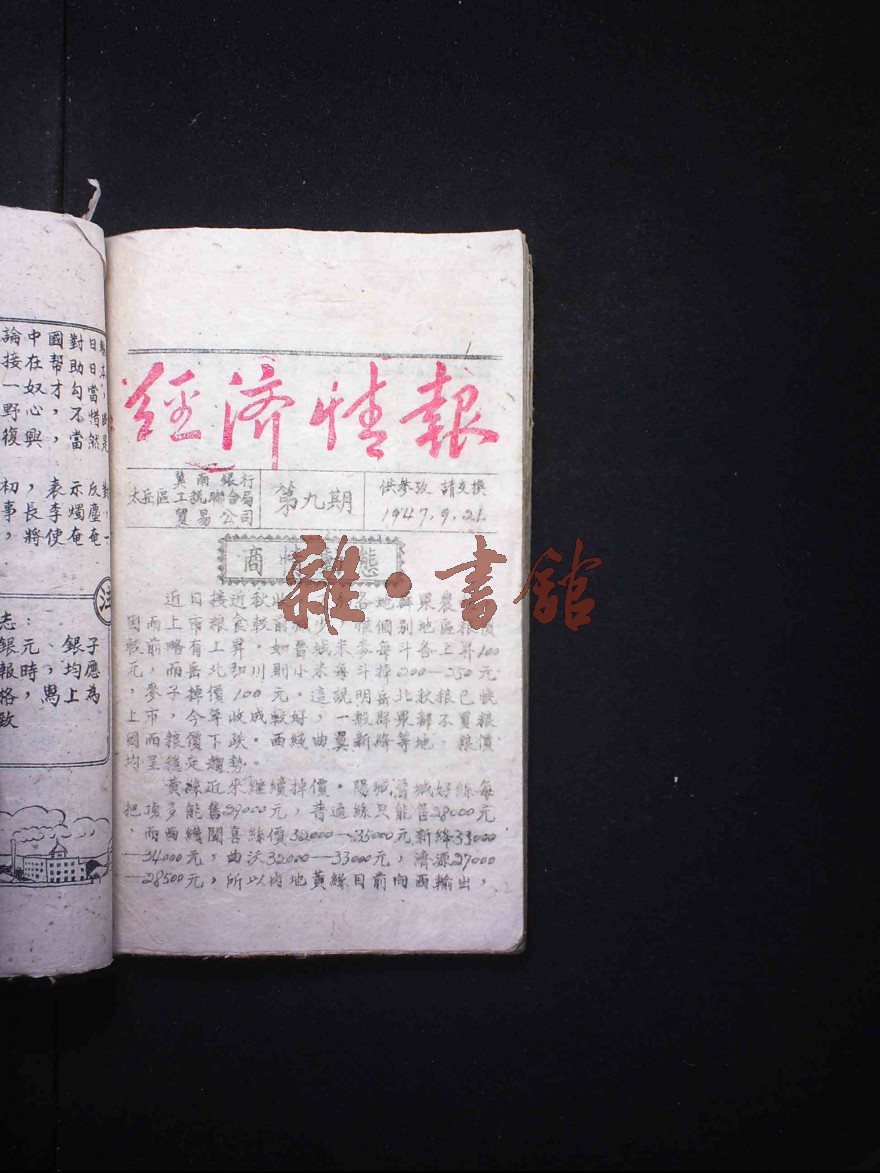 經濟情報
太岳區
冀南銀行
工商聯合局
貿易公司
第九期
供參攷 請交換
1947.9.21.
商情動態
雜·書館
近日接近秋收
因雨前上市粮食較前
元，而岳北和川則小米每斗掉200—250元
，麥子掉價100元。這說明岳北秋粮已快
上市，今年收成較好，一般群眾都不買粮
因而粮價下跌。西綫曲翼新絳等地，粮價
均呈稳定趨勢。
黃絲近來繼續掉價。陽城晉城好絲每
把頂多能售29000元，普通絲只能售28000元
，而西綫聞喜絲價32000—33000元新絳33000
—34000元，曲沃32000—33000元，濟源27000
—28500元，所以内地黃絲目前向西輸出，
論接一野復
中在奴心興
國帮才，，
對助勾不當
日日當惜然
初事，
，長將
表李使
示燭奄
反塵奄
志：
銀元、銀子
報時，均應
格，馬上為
致